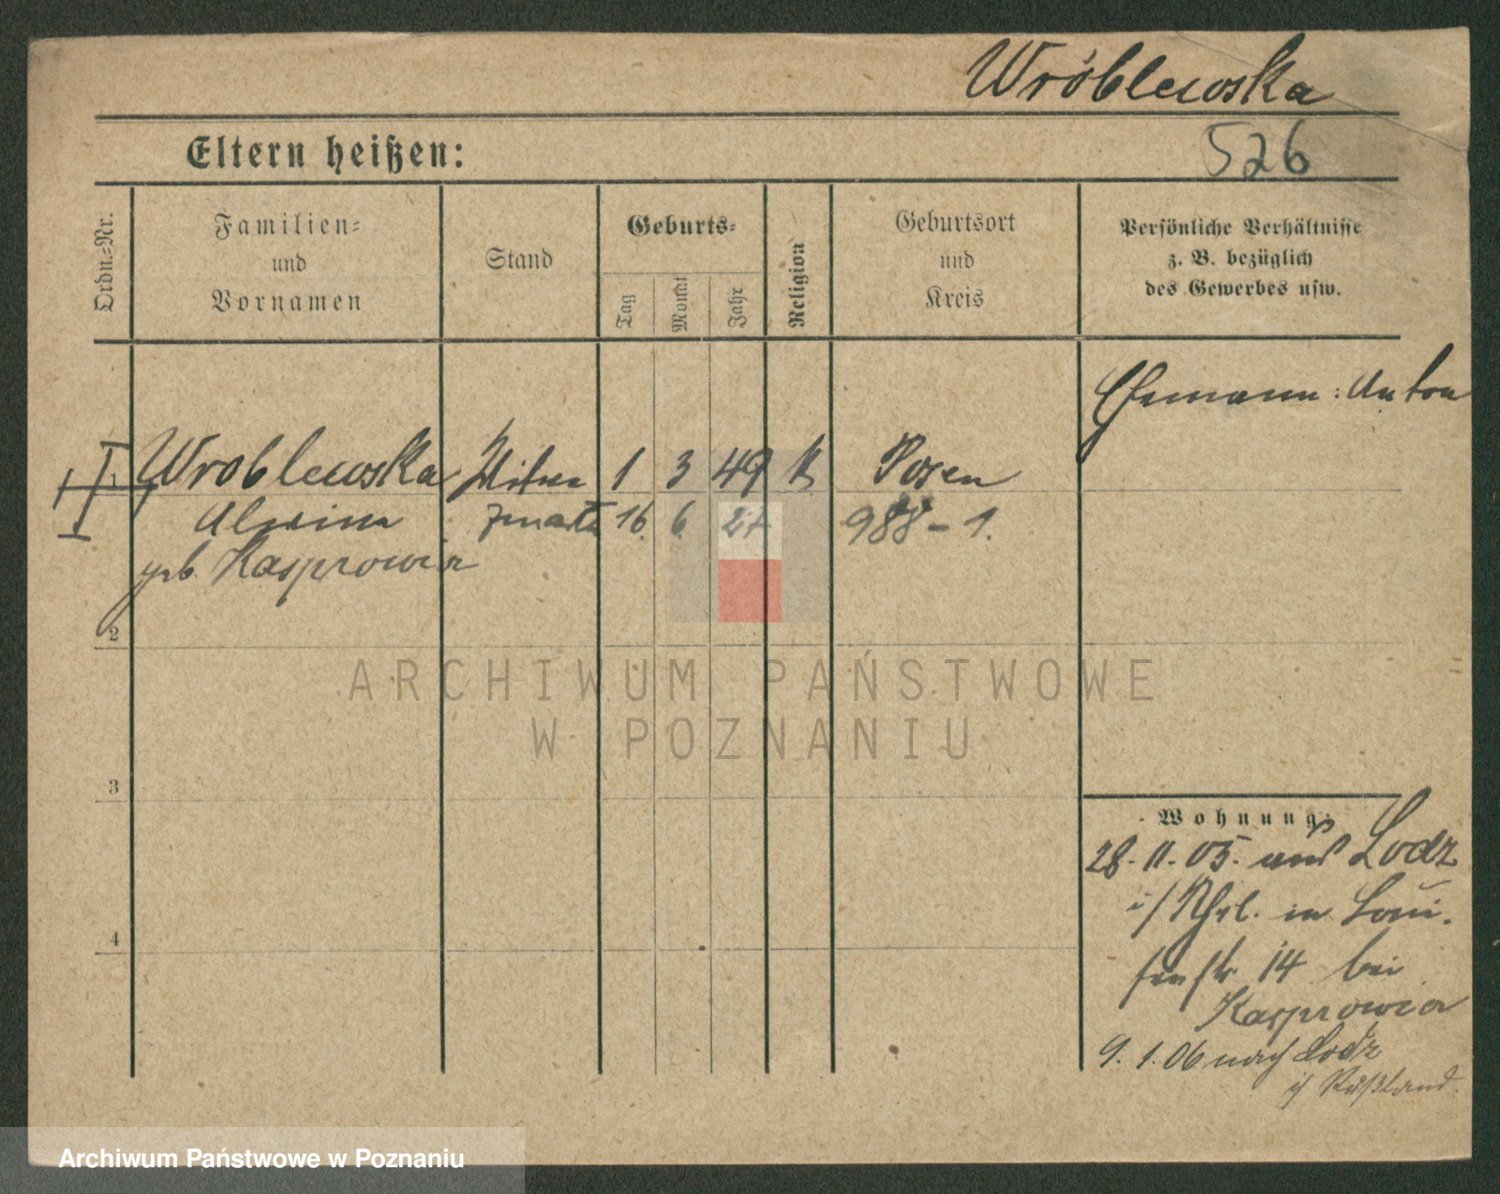 Wróblewska
Eltern heißen:
526
Ordn.-Nr.
Familien-
und
Vornamen
Stand
Geburts-
Tag
Monat
Jahr
Religion
Geburtsort
und
Kreis
Persönliche Verhältnisse
z. B. bezüglich
des Gewerbes usw.
Ehemann: Anton
1 Wroblewska Witwe 1 3 49 k Posen
zmarła 16 6 27 988-1.
geb. Kasprowicz
2
3
4
Wohnung:
28.11.05. aus Lodz
i/ Rßl. in Loui-
senstr 14 bei
Kasprowicz
9.1.06 nach Lodz
i/ Rußland.
ARCHIWUM PAŃSTWOWE
W POZNANIU
Archiwum Państwowe w Poznaniu